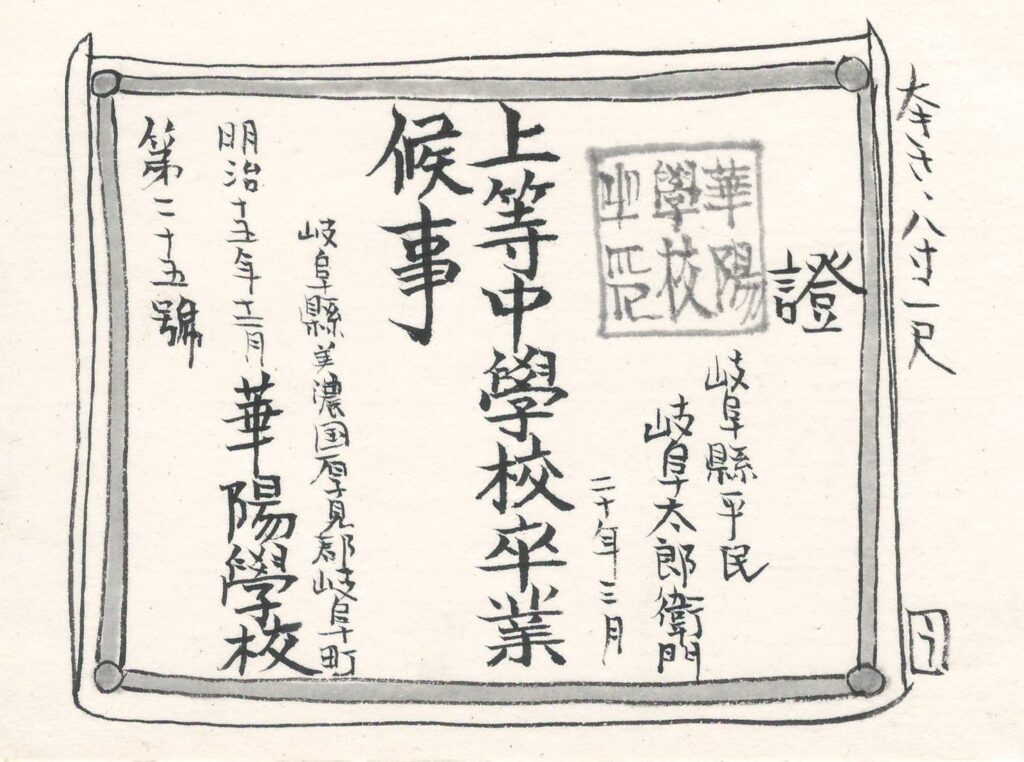 大キさ、八寸二尺
證
華陽
學校
之印
岐阜縣平民
岐阜太郎衛門
二十年三月
上等中學校卒業
候事
岐阜縣美濃国厚見郡岐阜十町
明治十五年十二月
華陽學校
第二十五號